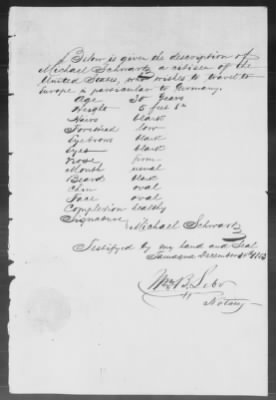 Below is given the description of
Michael Schwartz a citizen of the
United States, who wishes to travel to
Europe in particular to Germany.
Age 30 Years
Height 5 feet
Hairs black
Forehead low
Eyebrows black
Eyes black
Nose firm
Mouth usual
Beard black
Chin oval
Face oval
Complexion healthy
Signature
Michael Schwartz
Testified by my hand and Seal
Tamaqua December
Wm B. Lebo
Notary